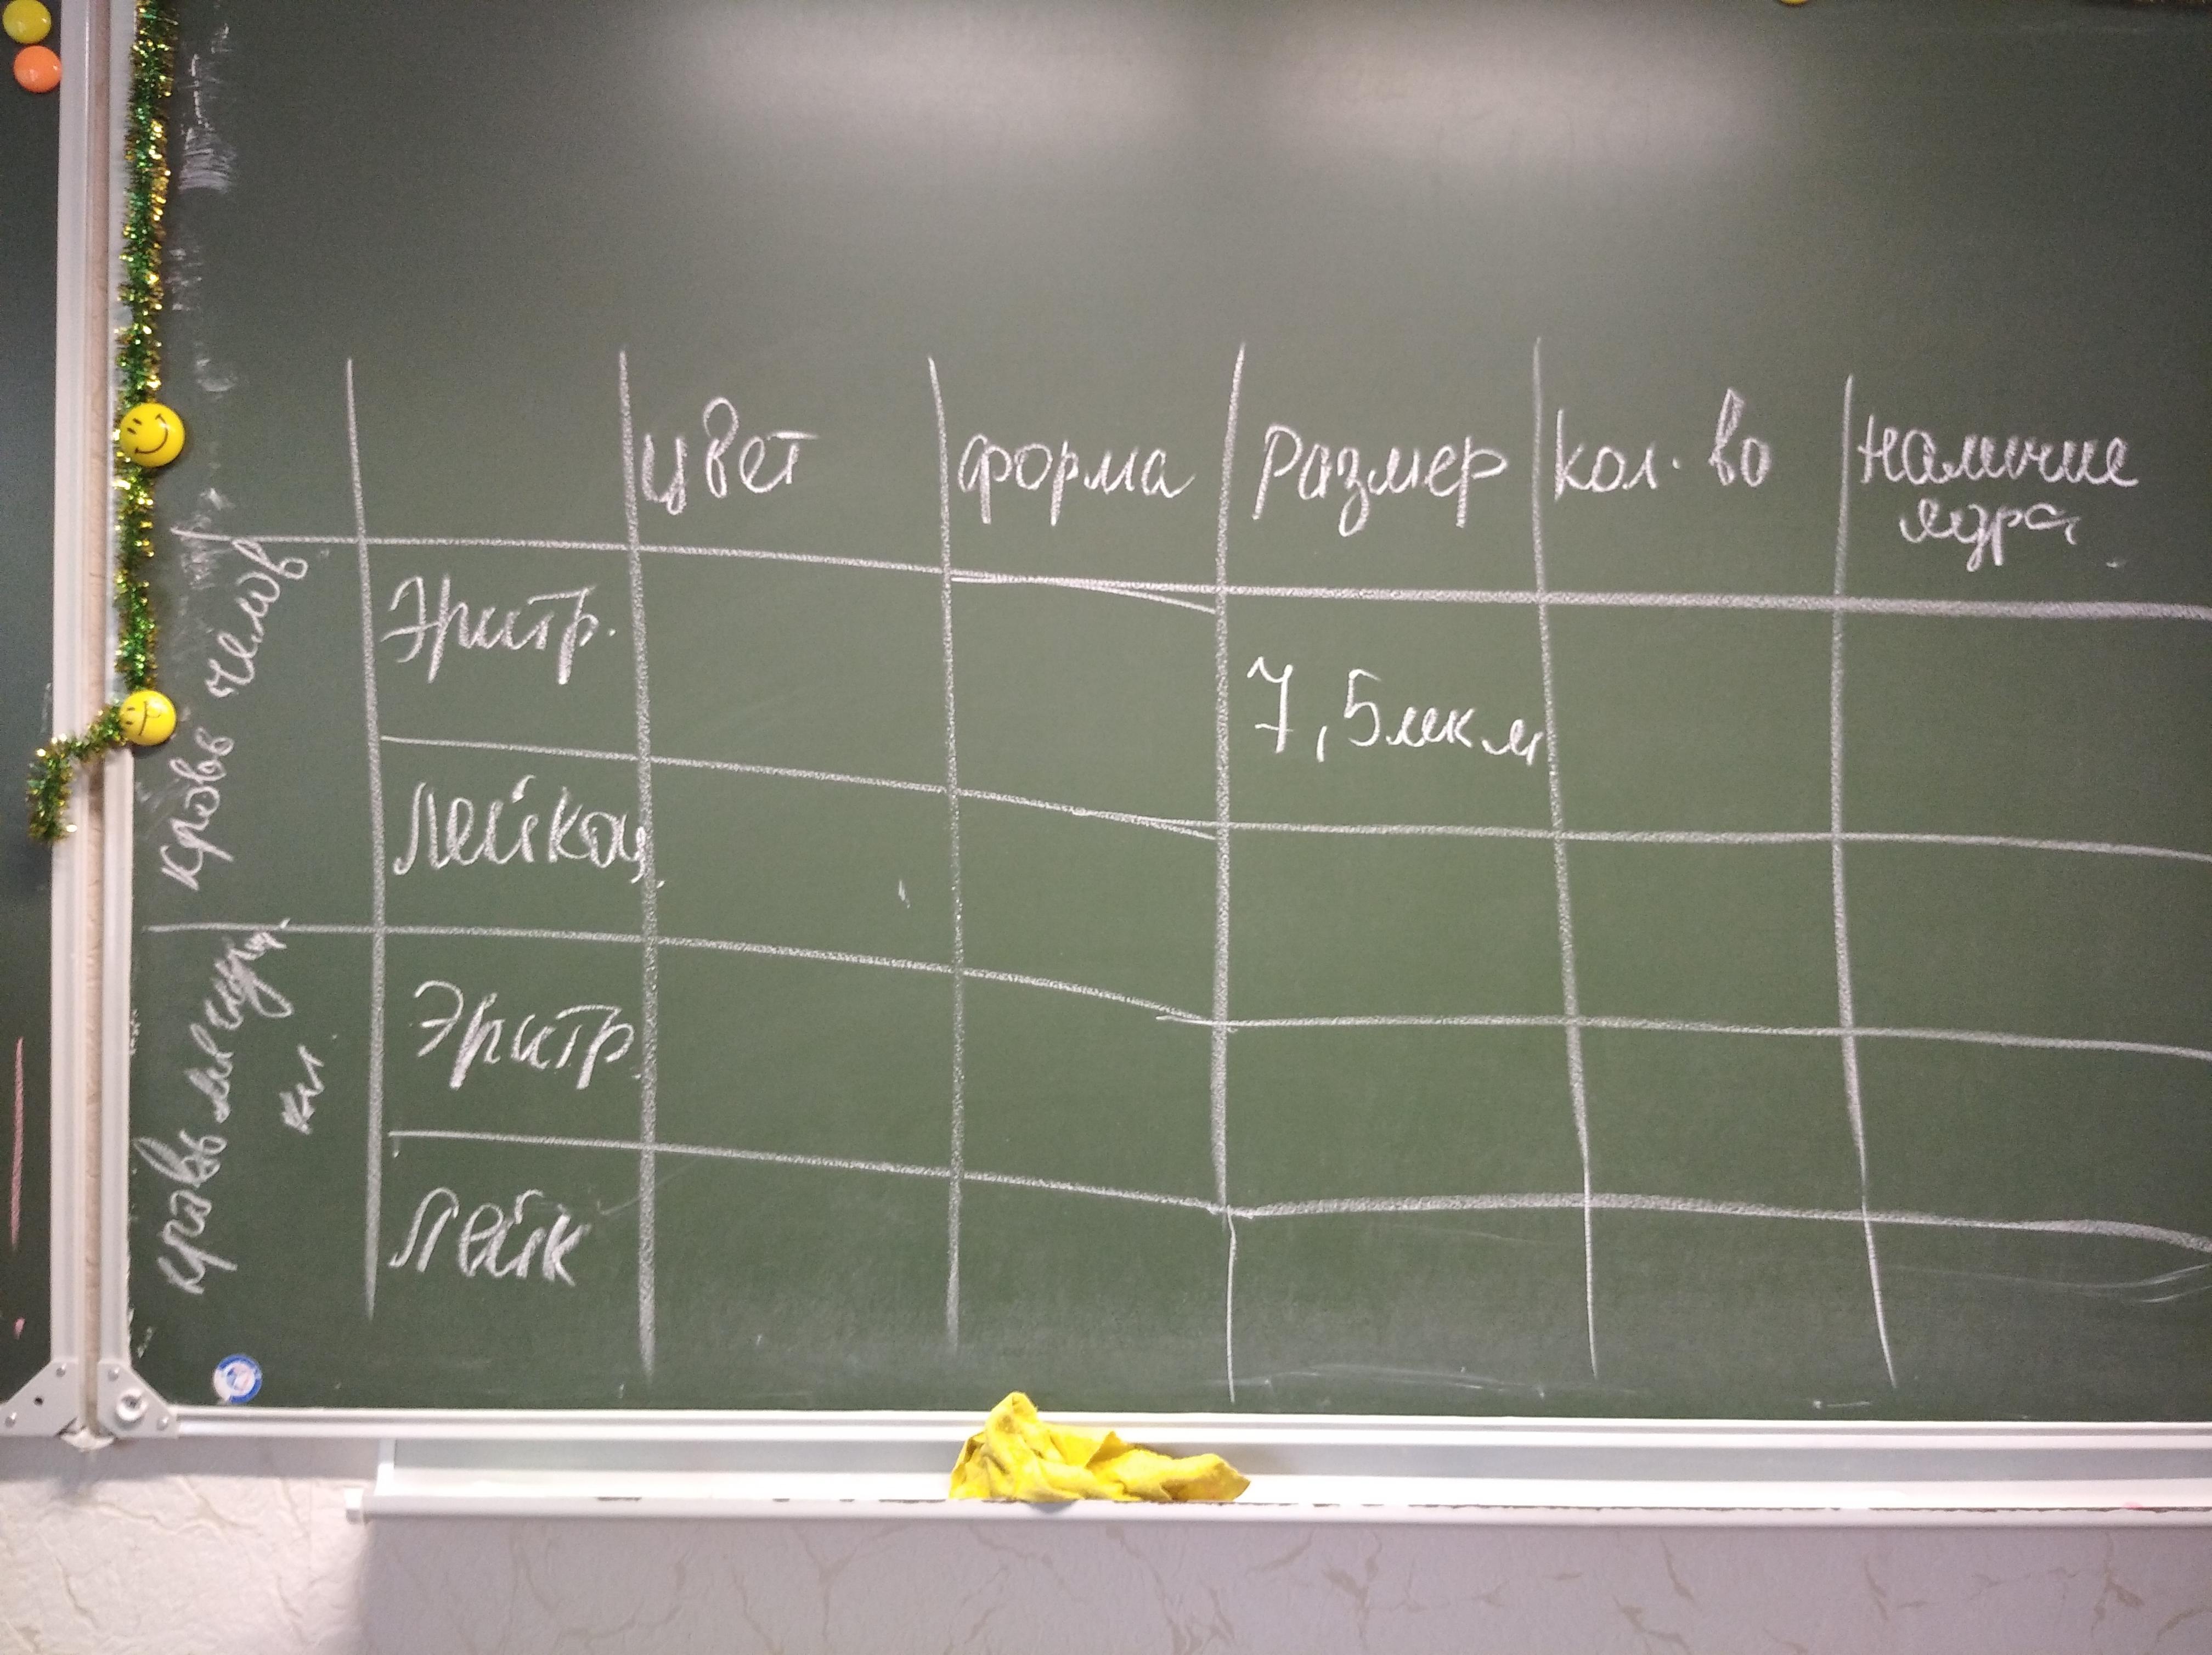 цвет форма размер кол-во наличие
ядра
кровь челов
Эритр.
7,5мкм
Лейкоц.
кровь лягуш.
Эритр.
Лейк